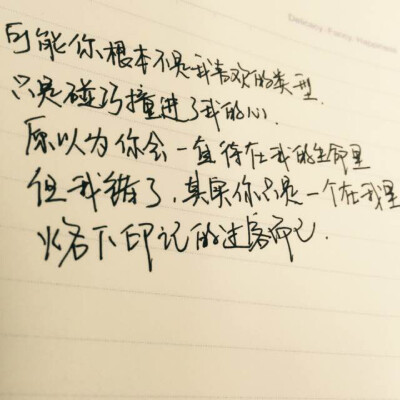 可能你根本不是我喜欢的类型.
只是碰巧撞进了我的心.
原以为你会一直待在我的生命里
但我错了,其实你只是一个在我里
烙下印记的过客而已.